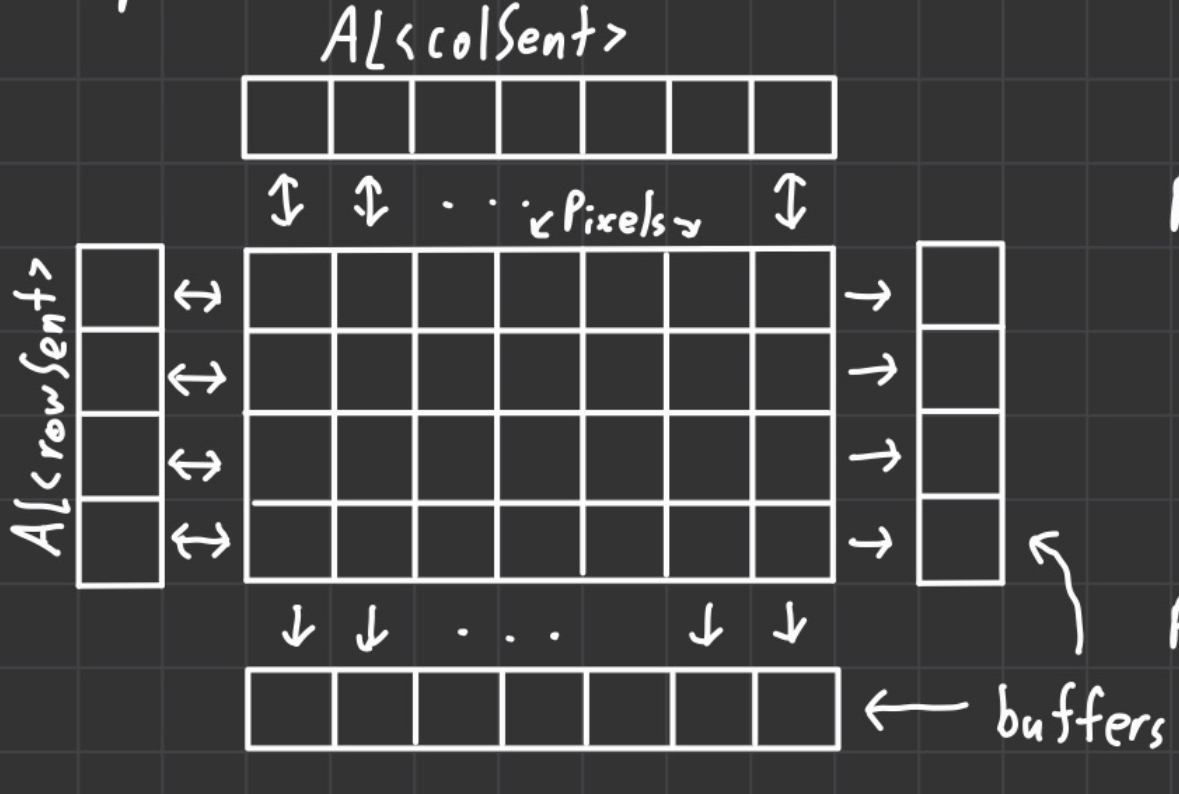 AL<colSent>
Pixels
AL<rowSent>
buffers